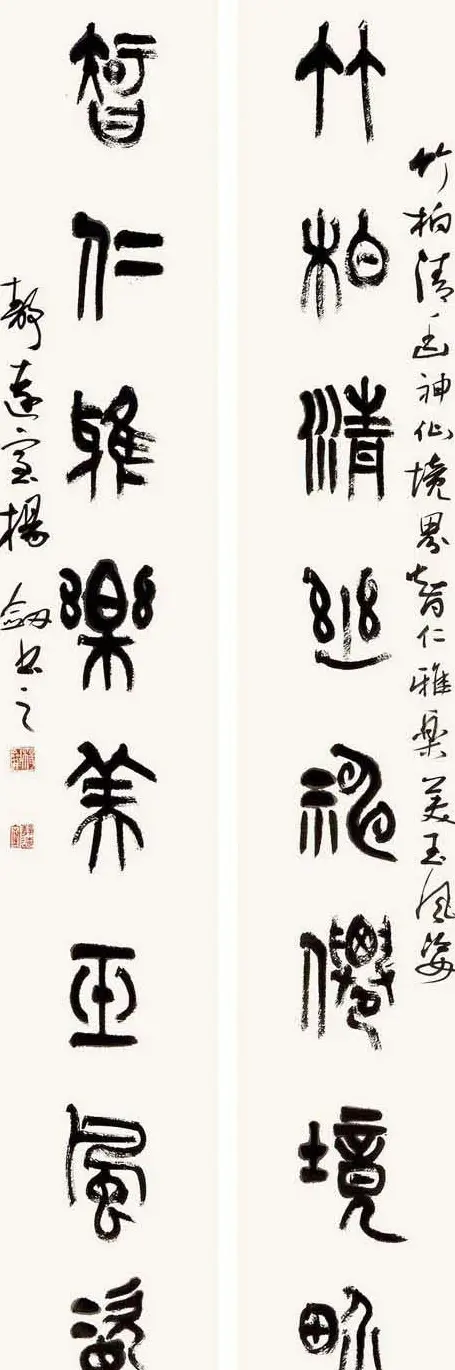 竹柏清幽神仙境界智仁雅樂美玉風姿
竹柏清幽神僊境界
智仁雅樂美玉風姿
靜遠室楊劍書之